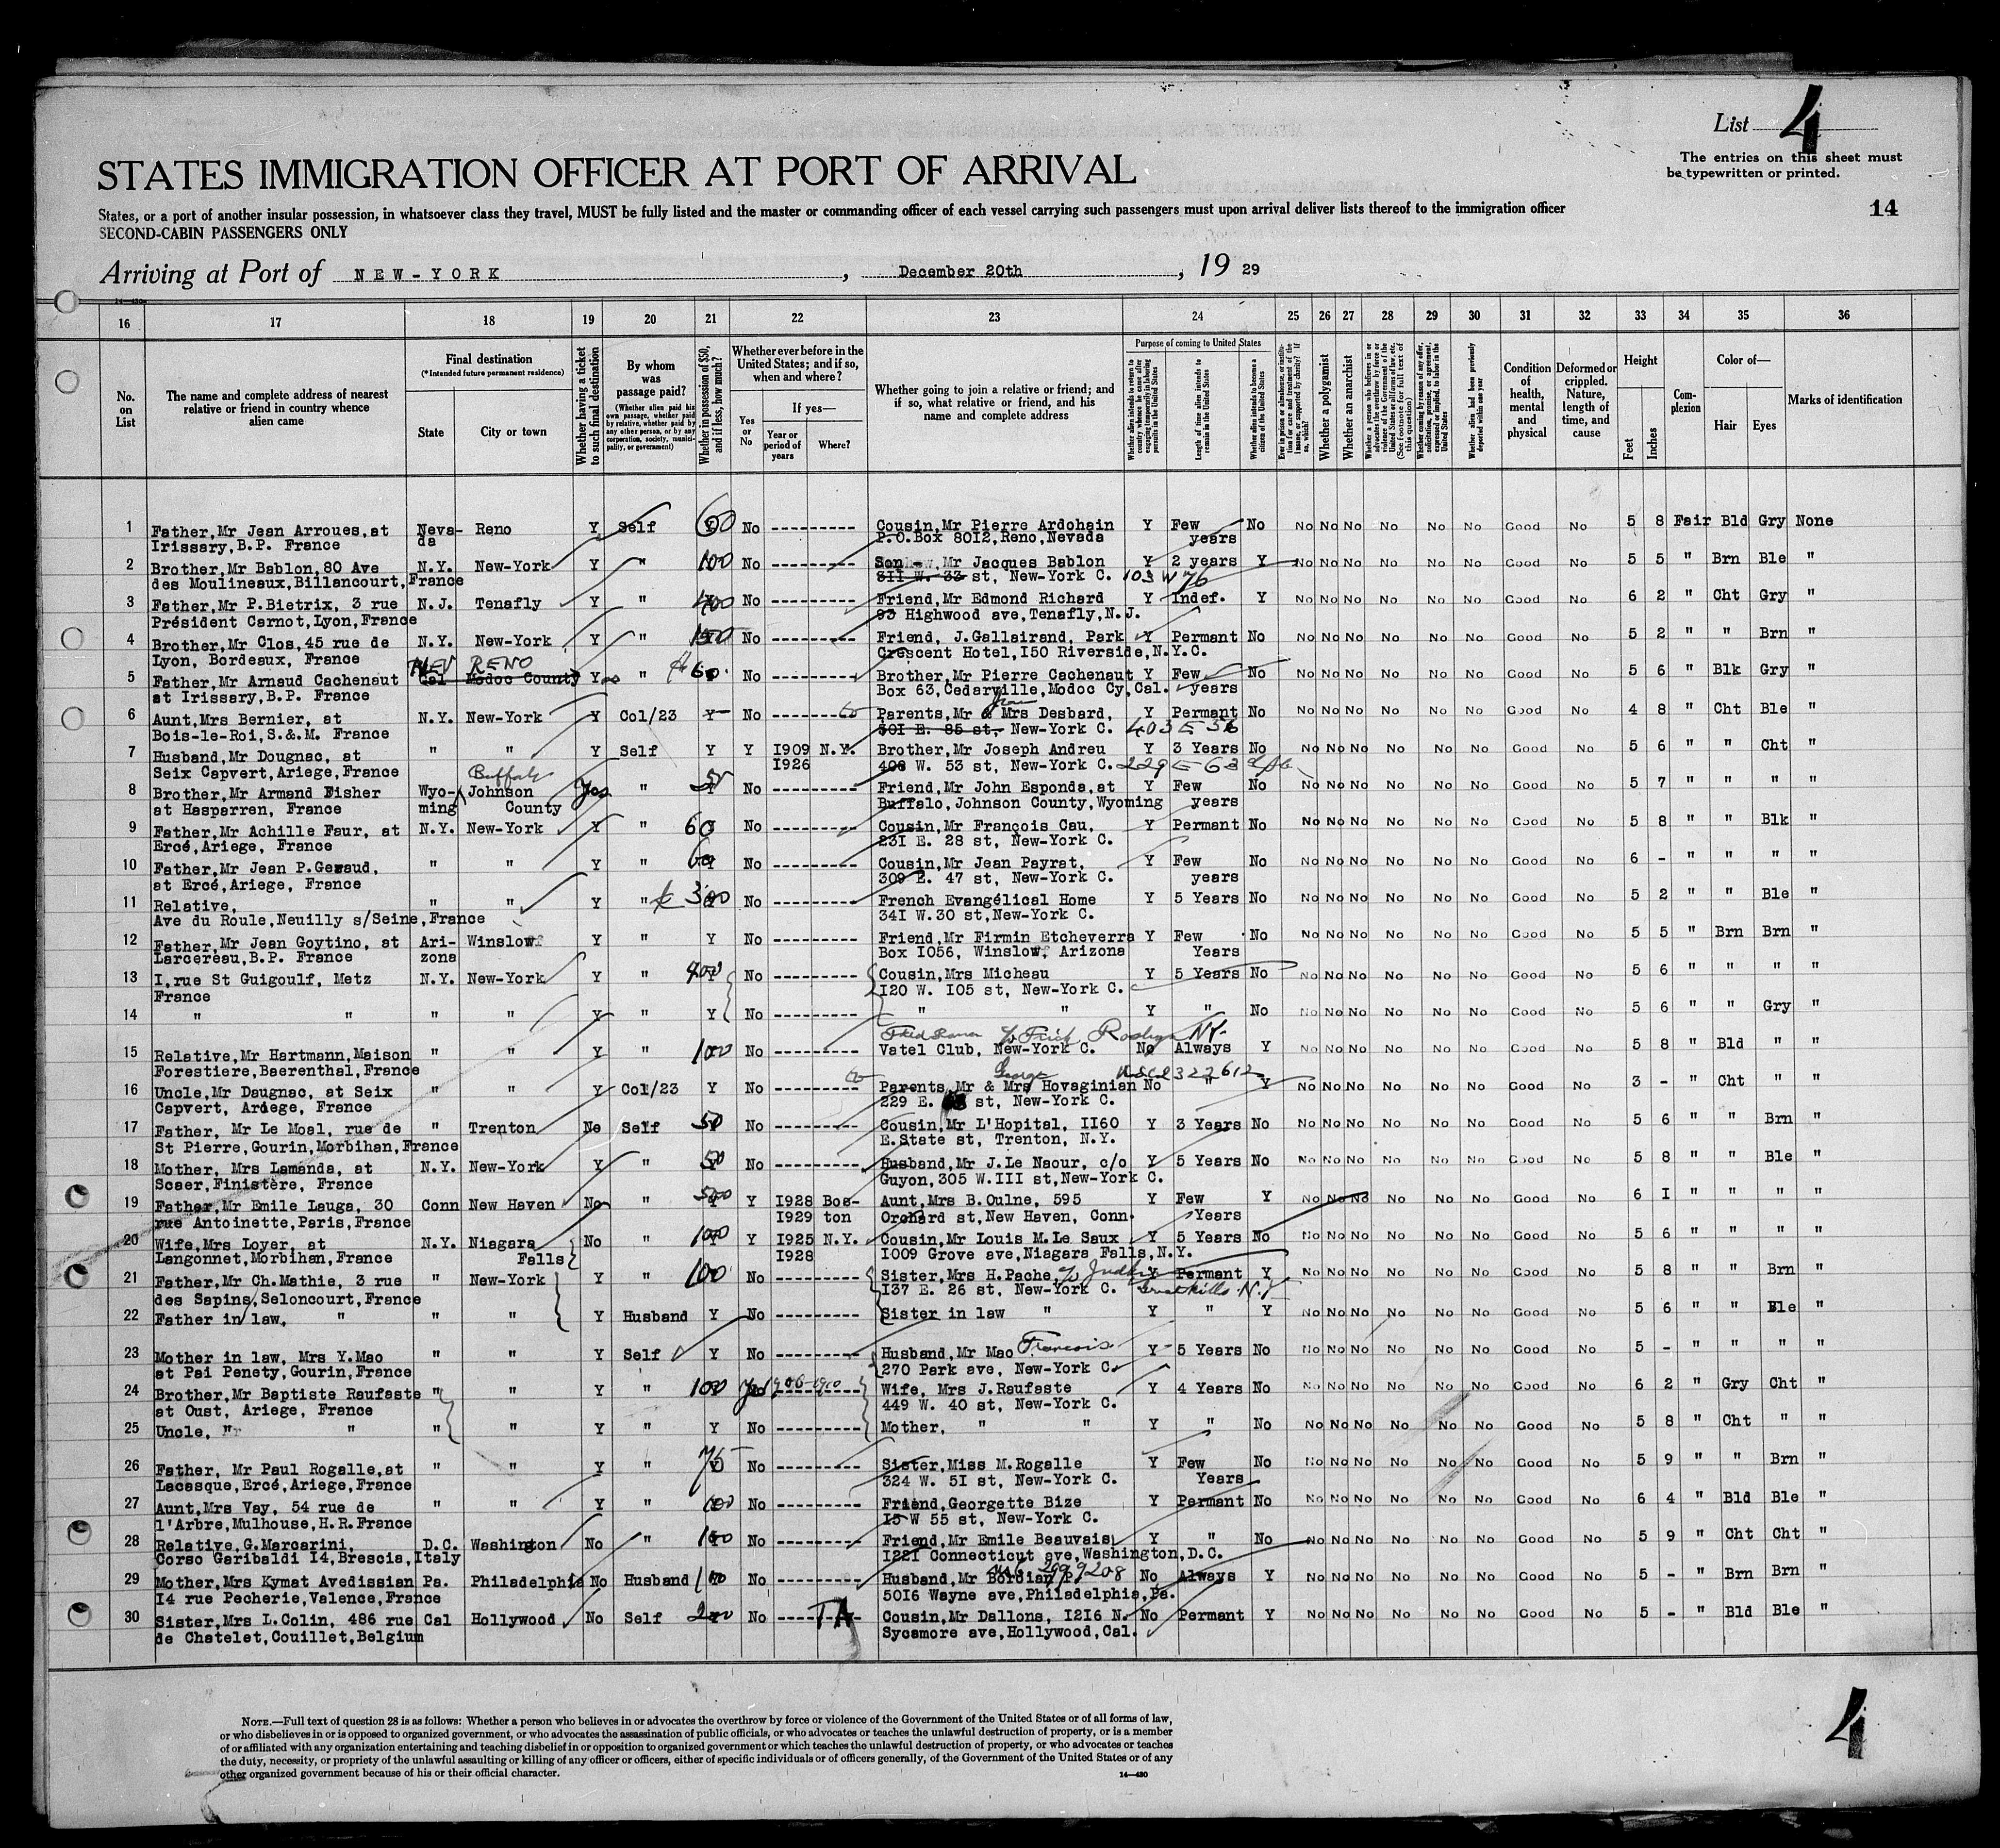 List 4
The entries on this sheet must
be typewritten or printed.
STATES IMMIGRATION OFFICER AT PORT OF ARRIVAL
14
States, or a port of another insular possession, in whatsoever class they travel, MUST be fully listed and the master or commanding officer of each vessel carrying such passengers must upon arrival deliver lists thereof to the immigration officer
SECOND-CABIN PASSENGERS ONLY
Arriving at Port of NEW-YORK, December 20th, 19 29
16 17 18 19 20 21 22 23 24 25 26 27 28 29 30 31 32 33 34 35 36
No. on List
The name and complete address of nearest relative or friend in country whence alien came
Final destination
(*Intended future permanent residence)
State City or town
Whether having a ticket to such final destination
By whom was passage paid?
(Whether alien paid his own passage, whether paid by relative, whether paid by any other person, or by any corporation, society, municipality, or government)
Whether in possession of $50, and if less, how much?
Whether ever before in the United States; and if so, when and where?
Yes or No
If yes—
Year or period of years
Where?
Whether going to join a relative or friend; and if so, what relative or friend, and his name and complete address
Purpose of coming to United States
Length of time alien intends to remain in the United States
Whether alien intends to become a citizen of the United States
Whether a polygamist
Whether an anarchist
Whether alien had been previously deported within one year
Condition of health, mental and physical
Deformed or crippled. Nature, length of time, and cause
Height
Feet Inches
Complexion
Color of—
Hair Eyes
Marks of identification
1 Father,Mr Jean Arroues,at Neva- Reno Y Self 60 No ---------- Cousin,Mr Pierre Ardohain Y Few No No No No No No No Good No 5 8 Fair Bld Gry None
Irissary,B.P. France da P.O.Box 8012,Reno,Nevada years
2 Brother,Mr Bablon,80 Ave N.Y. New-York Y " 100 No ---------- Son Mr Jacques Bablon Y 2 years Y No No No No No No Good No 5 5 " Brn Ble "
des Moulineaux,Billancourt,France 811 W. 33 st, New-York C. 103 W 76
3 Father,Mr P.Bietrix, 3 rue N.J. Tenafly Y " 400 No ---------- Friend,Mr Edmond Richard Y Indef. Y No No No No No No Good No 6 2 " Cht Gry "
Président Carnot,Lyon,France 93 Highwood ave,Tenafly,N.J.
4 Brother,Mr Clos,45 rue de N.Y. New-York Y " 150 No ---------- Friend, J.Gallairand, Park Y Permant No No No No No No No Good No 5 2 " " Brn "
Lyon, Bordeaux, France Crescent Hotel,I50 Riverside,N.Y.C.
NEV RENO
5 Father,Mr Arnaud Cachenaut Cal Modoc County Y " 60 No ---------- Brother,Mr Pierre Cachenaut Y Few No No No No No No No Good No 5 6 " Blk Gry "
at Irissary,B.P. France Box 63,Cedarville,Modoc Cy,Cal. years
6 Aunt,Mrs Bernier, at N.Y. New-York Y Col/23 Y No -------- Parents,Mr & Mrs Desbard, Y Permant No No No No No No No Good No 4 8 " Cht Ble "
Bois-le-Roi,S.&.M. France 30I E. 85 st, New-York C. 403 E 56
7 Husband,Mr Dougnac, at " " Y Self Y Y I909 N.Y. Brother,Mr Joseph Andreu Y 3 Years No No No No No No No Good No 5 6 " " Cht "
Seix Capvert,Ariege,France I926 408 W. 53 st, New-York C. 229 E 63
Buffalo
8 Brother,Mr Armand Fisher Wyo- Johnson Yes " 50 No ---------- Friend,Mr John Esponda,at Y Few No No No No No No No Good No 5 7 " " " "
at Hasparren, France ming County Buffalo,Johnson County,Wyoming years
9 Father,Mr Achille Faur, at N.Y. New-York Y " 60 No ---------- Cousin,Mr François Cau, Y Permant No No No No No No No Good No 5 8 " " Blk "
Ercé,Ariege, France 23I E. 28 st, New-York C.
10 Father,Mr Jean P.Geraud, " " Y " 60 No ---------- Cousin,Mr Jean Payrat, Y Few No No No No No No No Good No 6 - " " " "
at Ercé,Ariege, France 309 E. 47 st, New-York C. years
11 Relative, " " Y " 300 No ---------- French Evangélical Home Y 5 Years No No No No No No No Good No 5 2 " " Ble "
Ave du Roule,Neuilly s/Seine,France 34I W.30 st,New-York C.
12 Father,Mr Jean Goytino, at Ari- Winslow Y " Y No ---------- Friend,Mr Firmin Etcheverra Y Few No No No No No No No Good No 5 5 " Brn Brn "
Larcereau,B.P. France zona Box I056, Winslow, Arizona Years
13 I,rue St Guigoulf, Metz N.Y. New-York Y " 400 No ---------- Cousin,Mrs Micheau Y 5 Years No No No No No No No Good No 5 6 " " " "
France I20 W. I05 st, New-York C.
14 " " " " Y " Y No ---------- " " Y " No No No No No No No Good No 5 6 " " Gry "
Frick Roslyn NY
15 Relative,Mr Hartmann,Maison " " Y " 100 No ---------- Vatel Club, New-York C. No Always Y No No No No No No Good No 5 8 " Bld " "
Forestiere,Baerenthal,France George 322612
16 Uncle,Mr Daugnac, at Seix " " Y Col/23 Y No ---------- Parents,Mr & Mrs Hovaginian No " Y No No No No No No Good No 3 - " Cht " "
Capvert, Ariege, France 229 E. st, New-York C.
17 Father, Mr Le Moal, rue de " Trenton No Self 50 No ---------- Cousin,Mr L'Hopital, II60 Y 3 Years No No No No No No No Good No 5 6 " " Brn "
St Pierre,Gourin,Morbihan,France E.State st, Trenton, N.Y.
18 Mother, Mrs Lamanda, at N.Y. New-York Y " 50 No ---------- Husband,Mr J.Le Naour, c/o Y 5 Years No No No No No No No Good No 5 8 " " Ble "
Scaer,Finistère, France Guyon,305 W.III st,New-York C.
19 Father,Mr Emile Lauga, 30 Conn New Haven No " 500 Y I928 Bos- Aunt,Mrs B.Oulne, 595 Y Few Y No No No No No No Good No 6 I " " " "
rue Antoinette,Paris,France I929 ton Orchard st,New Haven, Conn. Years
20 Wife,Mrs Loyer, at N.Y. Niagara No " 100 Y I925 N.Y. Cousin,Mr Louis M.Le Saux Y 5 Years No No No No No No No Good No 5 6 " " " "
Langonnet,Morbihan,France Falls I928 I009 Grove ave,Niagara Falls,N.Y.
21 Father,Mr Ch.Mathie, 3 rue " New-York Y " 100 No ---------- Sister,Mrs H.Pache, Y Permant Y No No No No No No Good No 5 8 " " Brn "
des Sapins,Seloncourt,France I37 E. 26 st, New-York C. Great Kills N.Y
22 Father in law, " " " Y Husband Y No ---------- Sister in law " Y " Y No No No No No No Good No 5 6 " " Ble "
23 Mother in law, Mrs Y.Mao " " Y Self Y No ---------- Husband,Mr Mao Francois Y 5 Years No No No No No No No Good No 5 - " " " "
at Pai Penety,Gourin,France 270 Park ave, New-York C.
24 Brother,Mr Baptiste Raufaste " " Y " 100 Yes 1906-1910 Wife, Mrs J.Raufaste Y 4 Years No No No No No No No Good No 6 2 " Gry Cht "
at Oust, Ariege, France 449 W. 40 st, New-York C.
25 Uncle, " " " " Y " Y No ---------- Mother, " " Y " No No No No No No No Good No 5 8 " Cht " "
26 Father, Mr Paul Rogalle,at " " Y " 75 No ---------- Sister,Miss M.Rogalle Y Few No No No No No No No Good No 5 9 " " Brn "
Lacasque,Ercé,Ariege,France 324 W. 5I st, New-York C. Years
27 Aunt,Mrs Vay, 54 rue de " " Y " 100 No ---------- Friend,Georgette Bize Y Permant No No No No No No No Good No 6 4 " Bld Ble "
l'Arbre,Mulhouse,H.R.France I5 W 55 st, New-York C.
28 Relative,G.Marcarini, D.C. Washington No " 100 No ---------- Friend,Mr Emile Beauvais Y " No No No No No No No Good No 5 9 " Cht Cht "
Corso Garibaldi I4,Brescia,Italy I22I Connecticut ave,Washington,D.C.
29 Mother,Mrs Kymat Avedissian Pa. Philadelphia No Husband 100 No ---------- Husband,Mr 2999208 No Always Y No No No No No No Good No 5 - " Brn Brn "
I4 rue Pecherie,Valence,France 50I6 Wayne ave,Philadelphia,Pa.
30 Sister,Mrs L.Colin, 486 rue Cal Hollywood No Self 200 No ---------- TA Cousin,Mr Dallons, I2I6 N. No Permant Y No No No No No No Good No 5 - " Bld Ble "
de Chatelet,Couillet,Belgium Sycamore ave,Hollywood,Cal.
NOTE.—Full text of question 28 is as follows: Whether a person who believes in or advocates the overthrow by force or violence of the Government of the United States or of all forms of law,
or who disbelieves in or is opposed to organized government, or who advocates the assassination of public officials, or who advocates or teaches the unlawful destruction of property, or is a member
of or affiliated with any organization entertaining and teaching disbelief in or opposition to organized government or which teaches the unlawful destruction of property, or who advocates or teaches
the duty, necessity, or propriety of the unlawful assaulting or killing of any officer or officers, either of specific individuals or of officers generally, of the Government of the United States or of any
other organized government because of his or their official character.
14—430
4